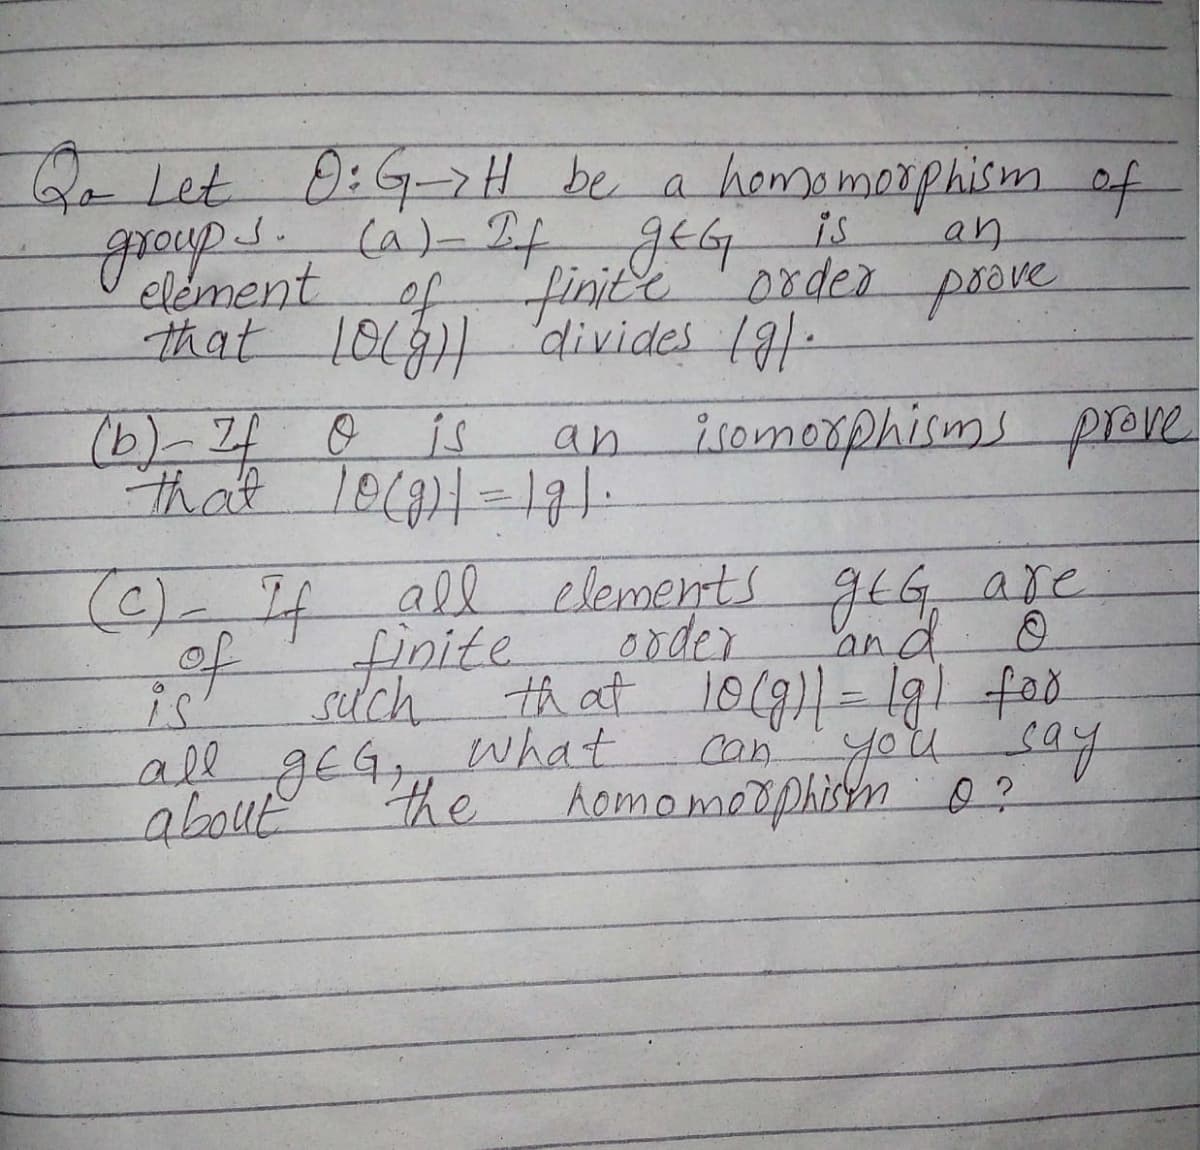 Q. Let θ: G→H be a homomorphism of
groups. (a)- If g∈G is an
element of finite order prove
that |θ(g)| divides |g|.
(b)- If θ is an isomorphisms prove
that |θ(g)| = |g|.
(c)- If all elements g∈G are
of finite order and θ
is such that |θ(g)| = |g| for
all g∈G, what can you say
about the homomorphism θ?